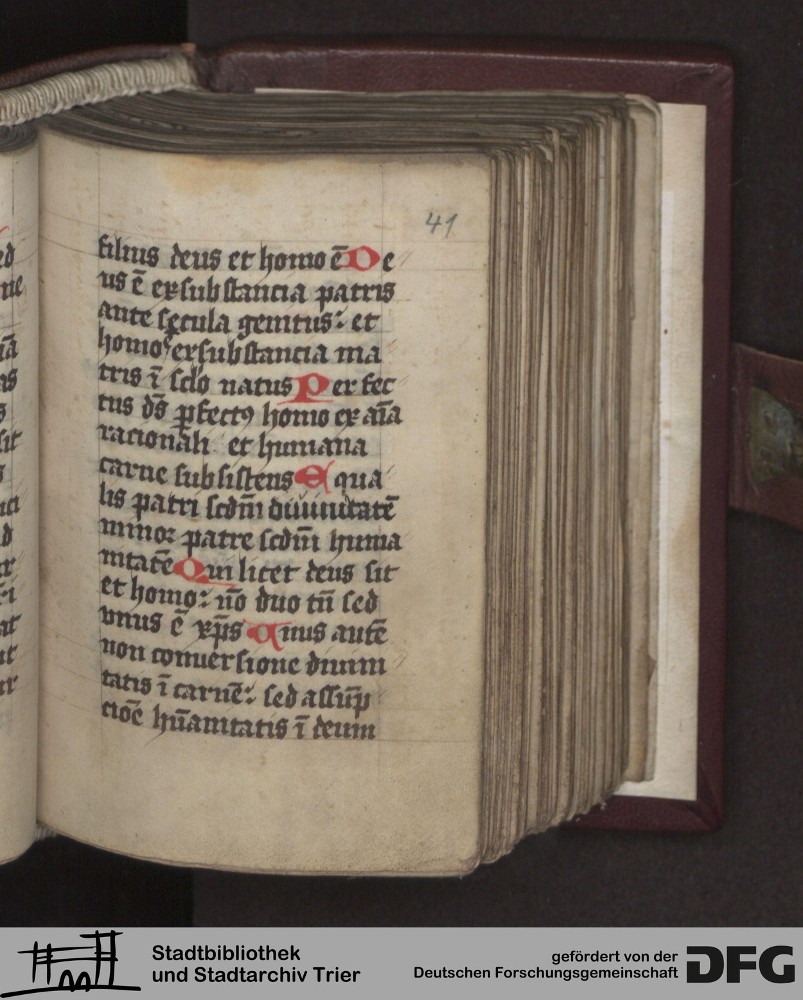 41
filius deus et homo ē De
us ē exsubstancia patris
ante secula genitus: et
homo exsubstancia ma
tris ī sclo natus Perfec
tus ds̄ ꝑfectꝯ homo ex aīa
racionali et humana
carne subsistens Equa
lis patri scdm̄ diuinitatē
minor patre scdm̄ huma
nitatē Qui licet deus sit
et homo: nō duo tn̄ sed
vnus ē xp̄s Vnus autē
non conuersione diuini
tatis ī carnē: sed assūp
ciōe hūanitatis ī deum
Stadtbibliothek
und Stadtarchiv Trier
gefördert von der
Deutschen Forschungsgemeinschaft
DFG